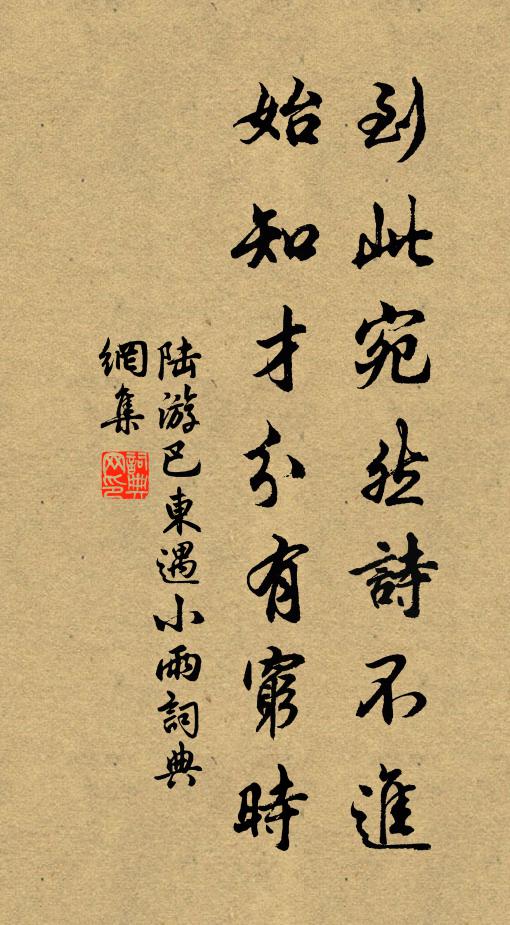 到此宛然詩不進
始知才分有窮時
陆游巴東遇小雨詞典
網集
詞典
网印